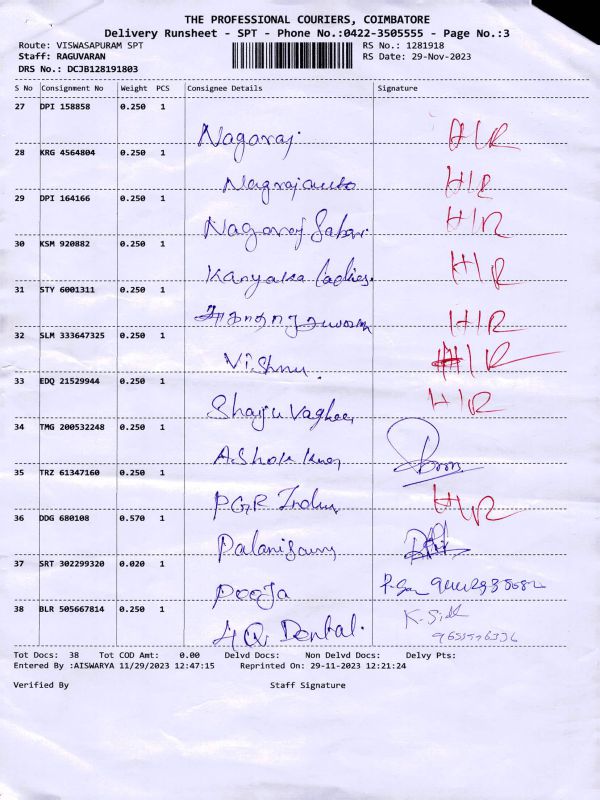 THE PROFESSIONAL COURIERS, COIMBATORE
Delivery Runsheet - SPT - Phone No.:0422-3505555 - Page No.:3
Route: VISWASAPURAM SPT RS No.: 1281918
Staff: RAGUVARAN RS Date: 29-Nov-2023
DRS No.: DCJB128191803
S No Consignment No Weight PCS Consignee Details Signature
27 DPI 158858 0.250 1
Nagaraj HIR
28 KRG 4564804 0.250 1
Nagrajauto HIR
29 DPI 164166 0.250 1
Nagaraj HIR
30 KSM 920882 0.250 1
Kanyaka ladies. HIR
31 STY 6001311 0.250 1
HIR
32 SLM 333647325 0.250 1
Vishnu. HIR
33 EDQ 21529944 0.250 1
Shaiju HIR
34 TMG 200532248 0.250 1
Ashok
35 TRZ 61347160 0.250 1
PGR HIR
36 DDG 680108 0.570 1
Palanisamy
37 SRT 302299320 0.020 1
Pooja
38 BLR 505667814 0.250 1
Dental.
Tot Docs: 38 Tot COD Amt: 0.00 Delvd Docs: Non Delvd Docs: Delvy Pts:
Entered By :AISWARYA 11/29/2023 12:47:15 Reprinted On: 29-11-2023 12:21:24
Verified By Staff Signature